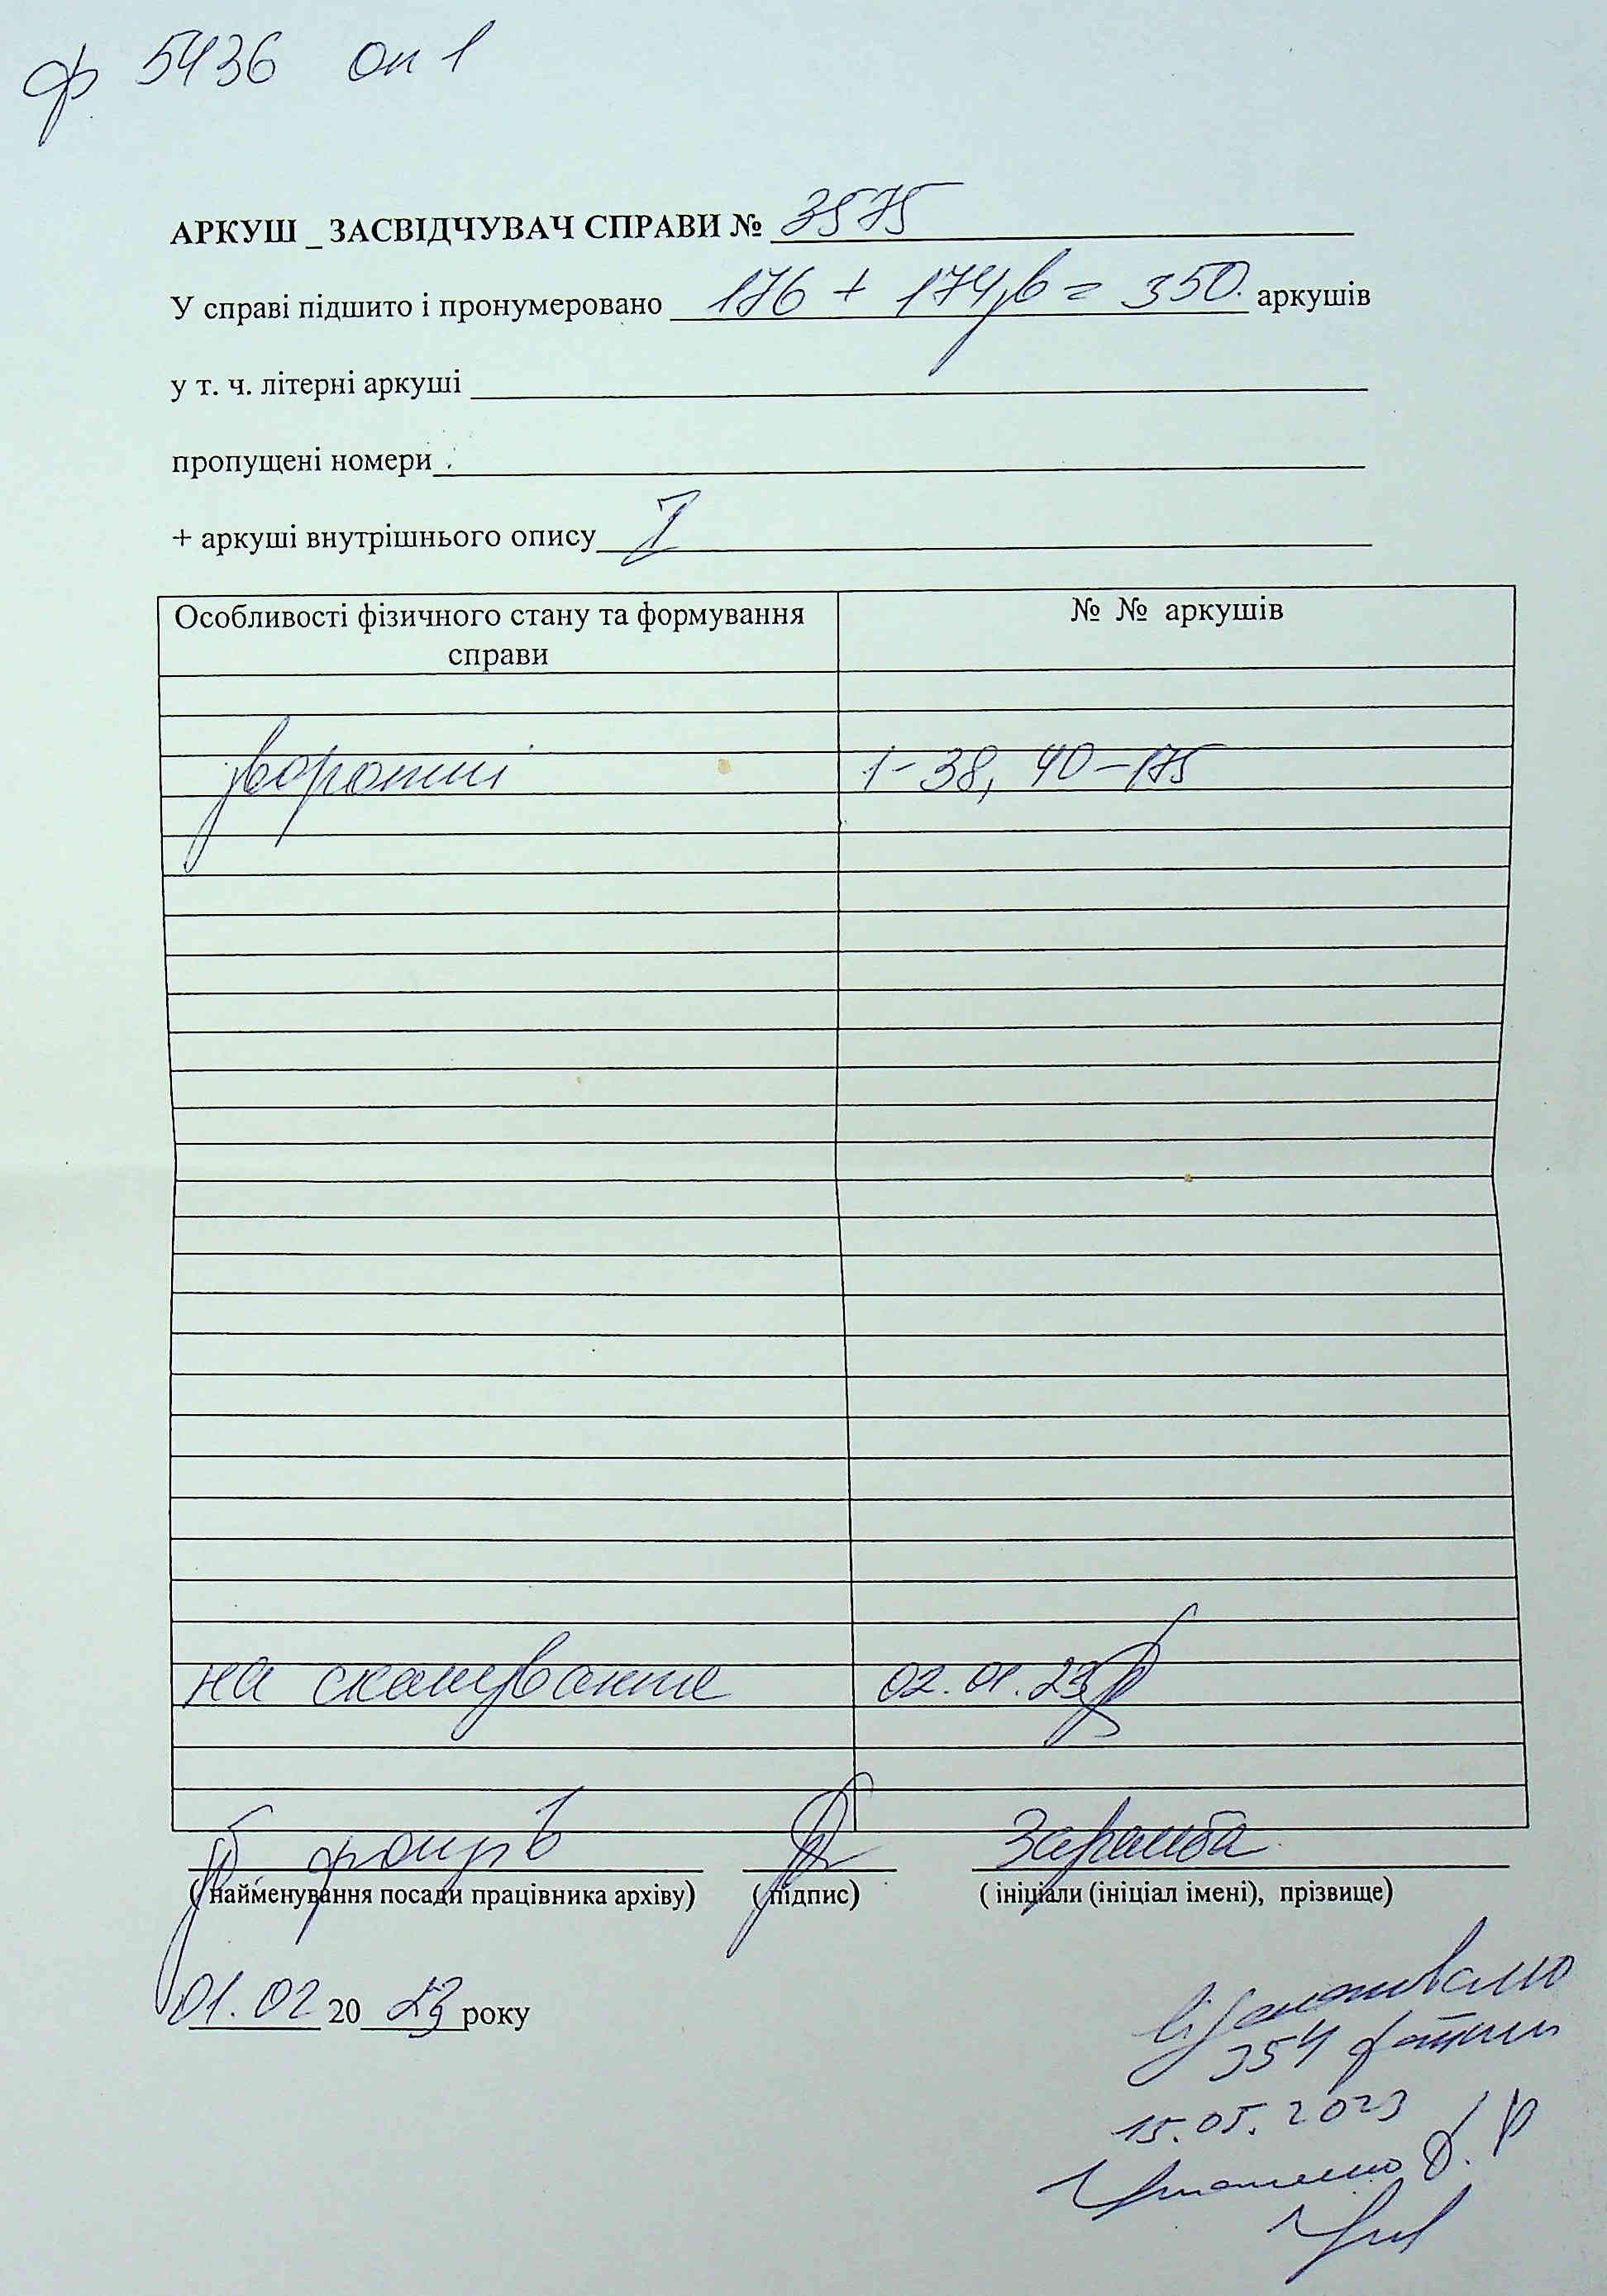 ф 5436 оп 1
АРКУШ _ ЗАСВІДЧУВАЧ СПРАВИ № 3575
У справі підшито і пронумеровано 176 + 174 = 350. аркушів
у т. ч. літерні аркуші
пропущені номери
+ аркуші внутрішнього опису 1
Особливості фізичного стану та формування справи
№ № аркушів
звороти 1-38, 40-175
на сканування 02.01.23
фондів Заремба
( найменування посади працівника архіву) ( підпис) ( ініціали (ініціал імені), прізвище)
01.02 2023 року
Відскановано
354
15.05.2023